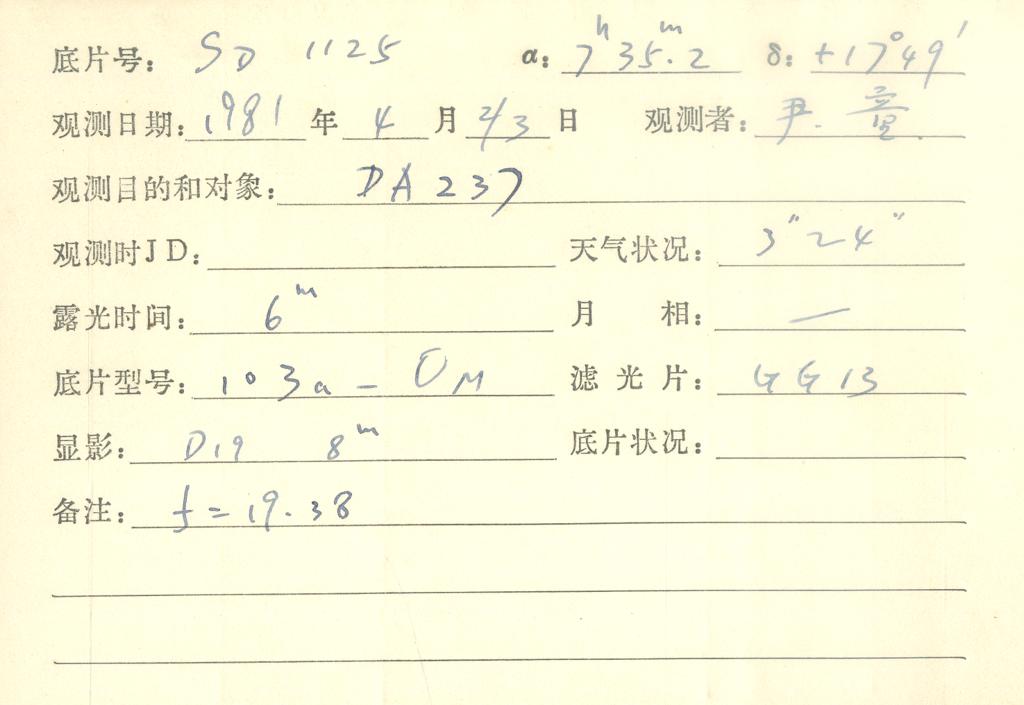 底片号: SD 1125 α: 7h 35m.2 δ: +17°49′
观测日期: 1981 年 4 月 2/3 日 观测者: 尹. 童.
观测目的和对象: DA 237
观测时JD: 天气状况: 3″ 24″
露光时间: 6m 月 相: —
底片型号: 103a-O M 滤光片: GG 13
显影: D19 8m 底片状况:
备注: f=19.38